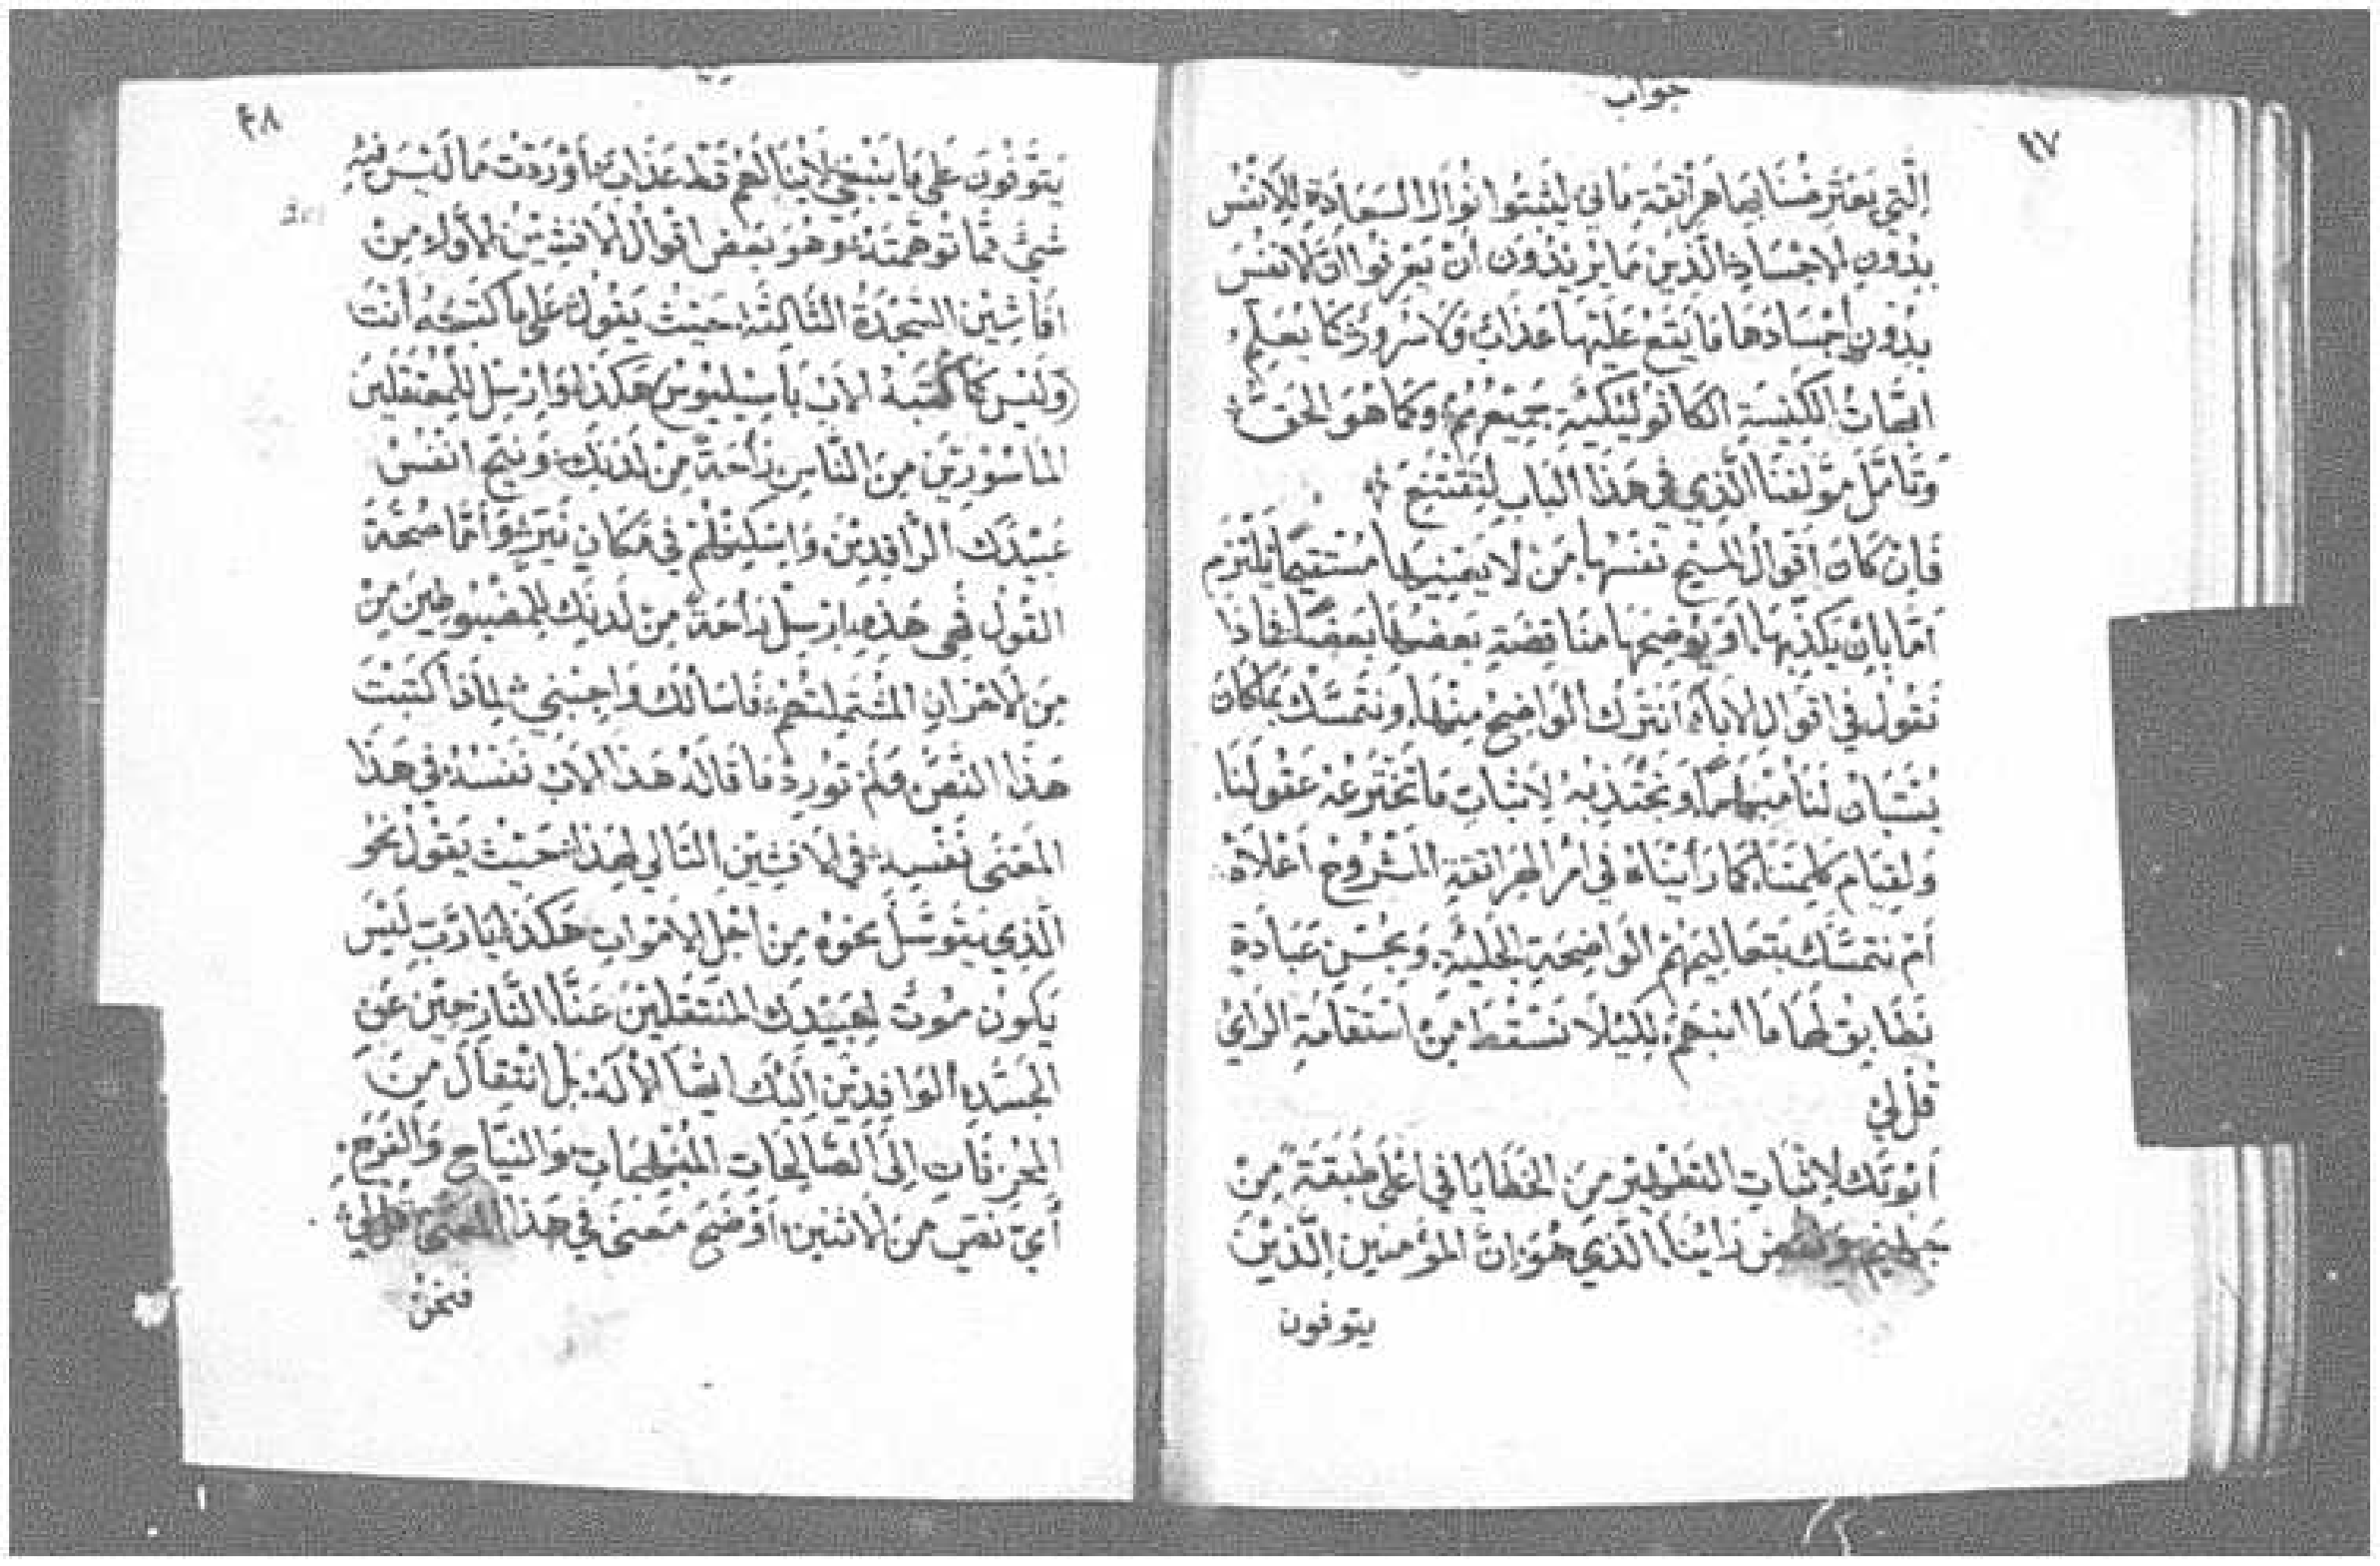 جواب
٤٧
التي يعترضنا بها هراتقة ماني ليثبتوا نوال السعادة للانفس
بدون الاجساد الذين ما يريدون ان يعرفوا ان الانفس
بدون اجسادها ما يقع عليها عذاب ولا سرور كما يعلم
ابهات الكنيسة الكاتوليكية جميعهم وكما هو الحق
وتامل مولفنا الذي في هذا الباب ليقتنع
فان كان اقوال المسيح نفسها من لا يفسرها مستقيما يلتزم
اما بان يكذبها او يوضحها مناقضة بعضها بعضا فماذا
نقول في اقوال الاباء انترك الواضح منها ونتمسك بما كان
لنا مبهما ونجتذبه لاثبات ما تخترعه عقولنا
ولقيام كلمتنا كما رايناه في امر الهراتقة المشروح اعلاه
ام نتمسك بتعاليمهم الواضحة الجلية وبحسن عبادة
نطابق لها ما ابنهم لكيلا نسقط من استقامة الراي
قل لي
ابوتك لاثبات التطهير من الخطايا في اعلى طبقة من
جهنم ونقض راينا الذي هو ان المؤمنين الذين
يتوفون
٤٨
يتوفون على ما ينبغي لا ينالهم قط عذاب اوردت ما ليس فيه
شي مما توهمته وهو بعض اقوال الافشين الاول من
افاشين السجدة الثالثة حيث يقول على ما كتبته انت
(وليس كما كتبه الاب باسيليوس) هكذا وارسل للمعتقلين
الماسورين من الناس راحة من لدنك ونيح انفس
عبيدك الراقدين واسكنهم في مكان نير واما صحة
القول فهي هذه ارسل راحة من لدنك للمضبوطين من
من الاحزان المشتملتهم فاسالك واجبني لماذا كتبت
هذا النص ولم تورد ما قاله هذا الاب نفسه في هذا
المعنى نفسه في الافشين التالي لهذا حيث يقول نحو
الذي يتوسل نحوه من اجل الاموات هكذا يا رب ليس
يكون موت لعبيدك المنتقلين عنا النازحين عن
الجسد الوافدين اليك ايها الاله بل انتقال من
المحزنات الى الصالحات المبهجات والنياح والفرح
اي نص من الاثنين اوضح معنى في هذا المعنى